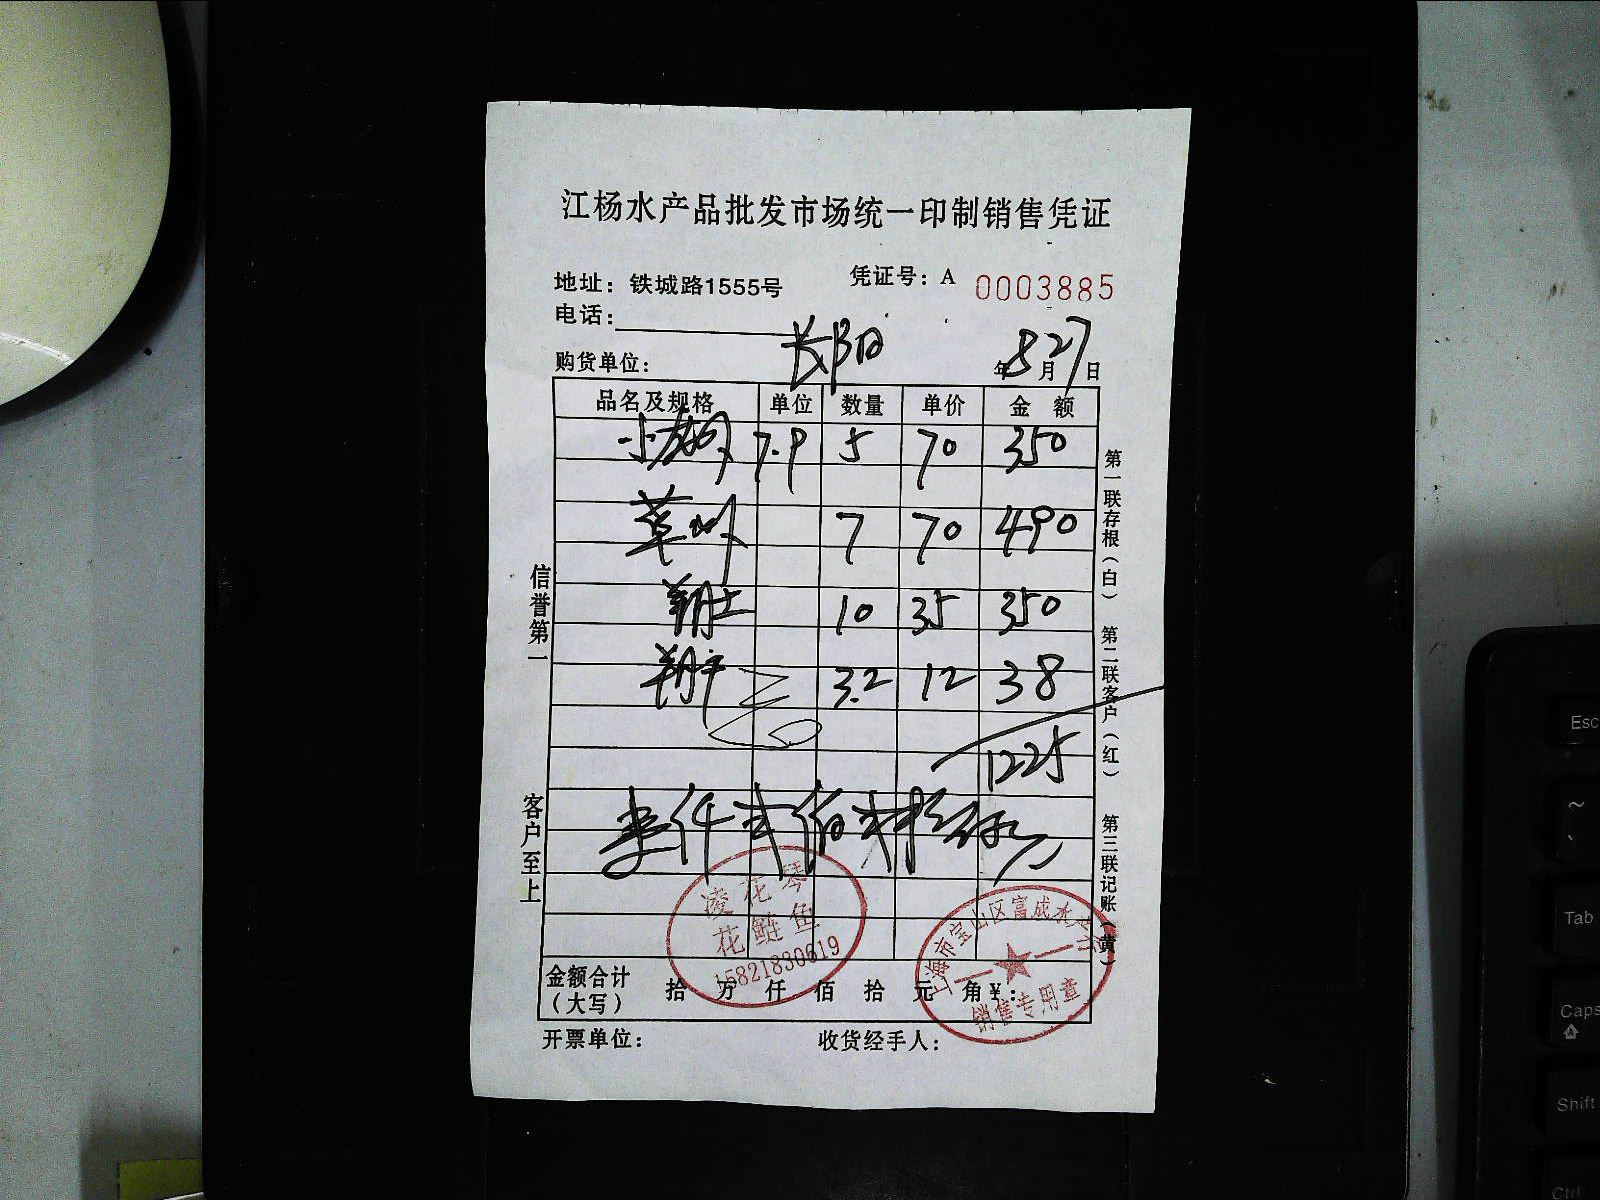 江杨水产品批发市场统一印制销售凭证
地址：铁城路1555号
凭证号：A 0003885
电话：
购货单位： 长阳
年 8 月 27 日
品名及规格 单位 数量 单价 金额
7.9 5 70 350
草 7 70 490
10 35 350
3.2 12 38
1225
壹仟弍佰
金额合计（大写） 拾 万 仟 佰 拾 元 角 ¥：
开票单位：
收货经手人：
信誉第一
客户至上
第一联存根（白）
第二联客户（红）
第三联记账（黄）
凌花琴
花鲢鱼
15821830619
上海市宝山区富成水产行
销售专用章
Esc
~
Tab
Caps
Shift
Ctrl